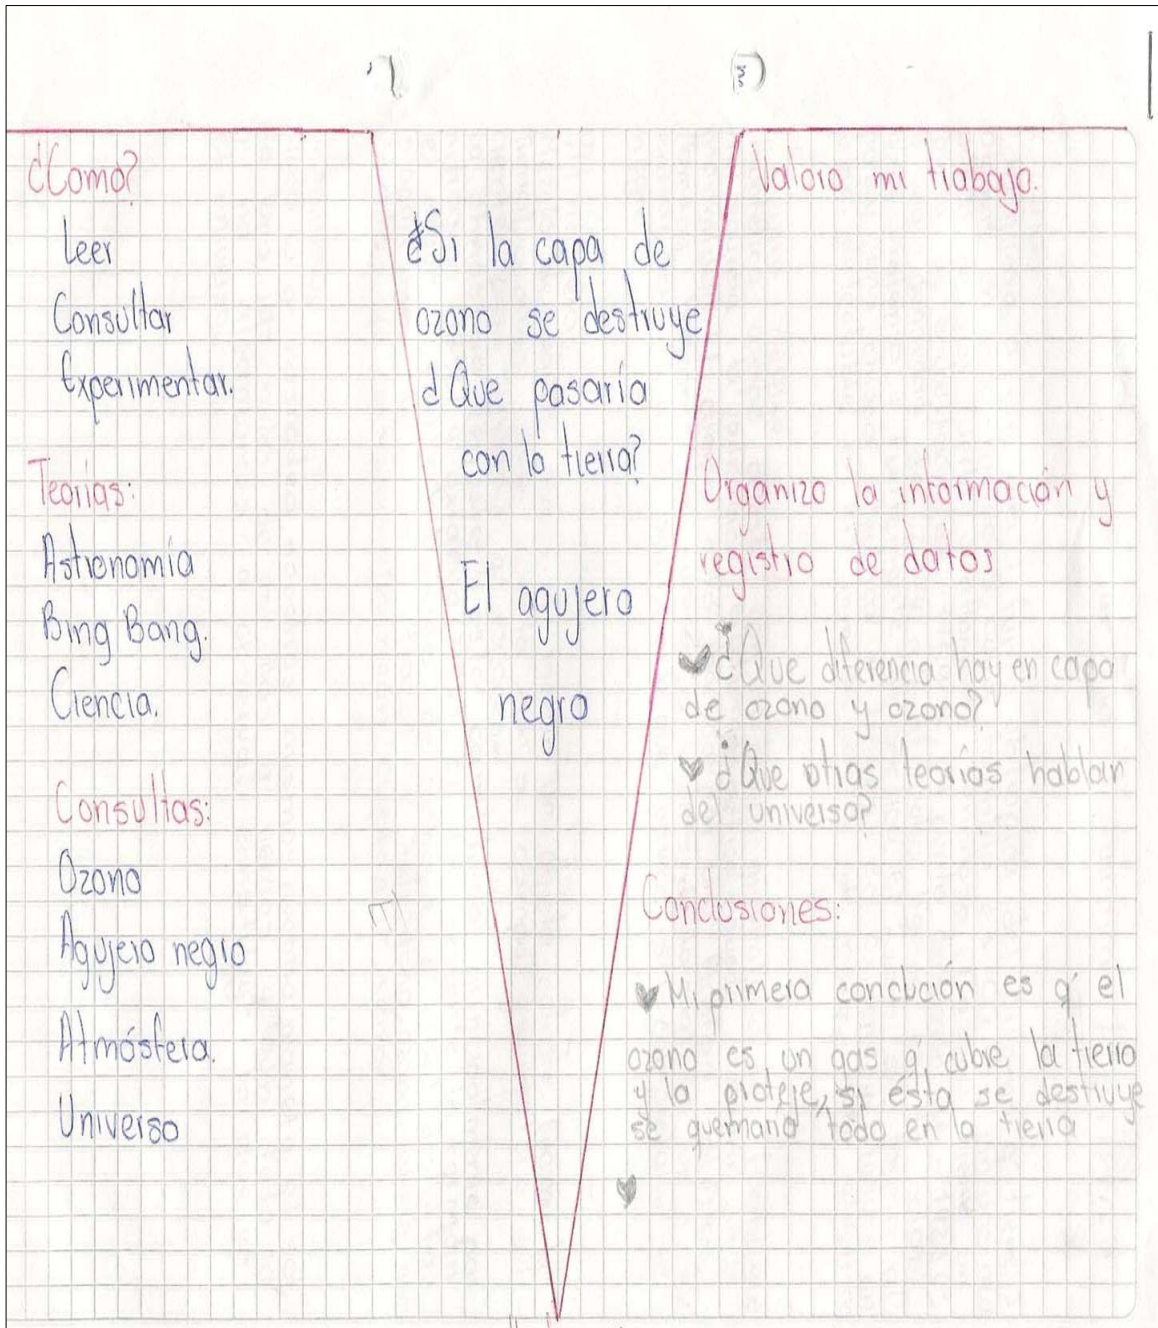 ¿Como?
Leer
Consultar
Experimentar.
Teorias:
Astronomía
Bing Bang.
Ciencia.
Consultas:
Ozono
Agujero negro
Atmósfera.
Universo
¿Si la capa de
ozono se destruye
¿Que pasaría
con la tierra?
El agujero
negro
3)
Valoro mi trabajo.
Organizo la información y
registro de datos
¿Que diferencia hay en capa
de ozono y ozono?
¿Que otras teorías hablan
del universo?
Conclusiones:
Mi primera conclución es q' el
ozono es un gas q' cubre la tierra
y la proteje, si ésta se destruye
se quemaría todo en la tierra